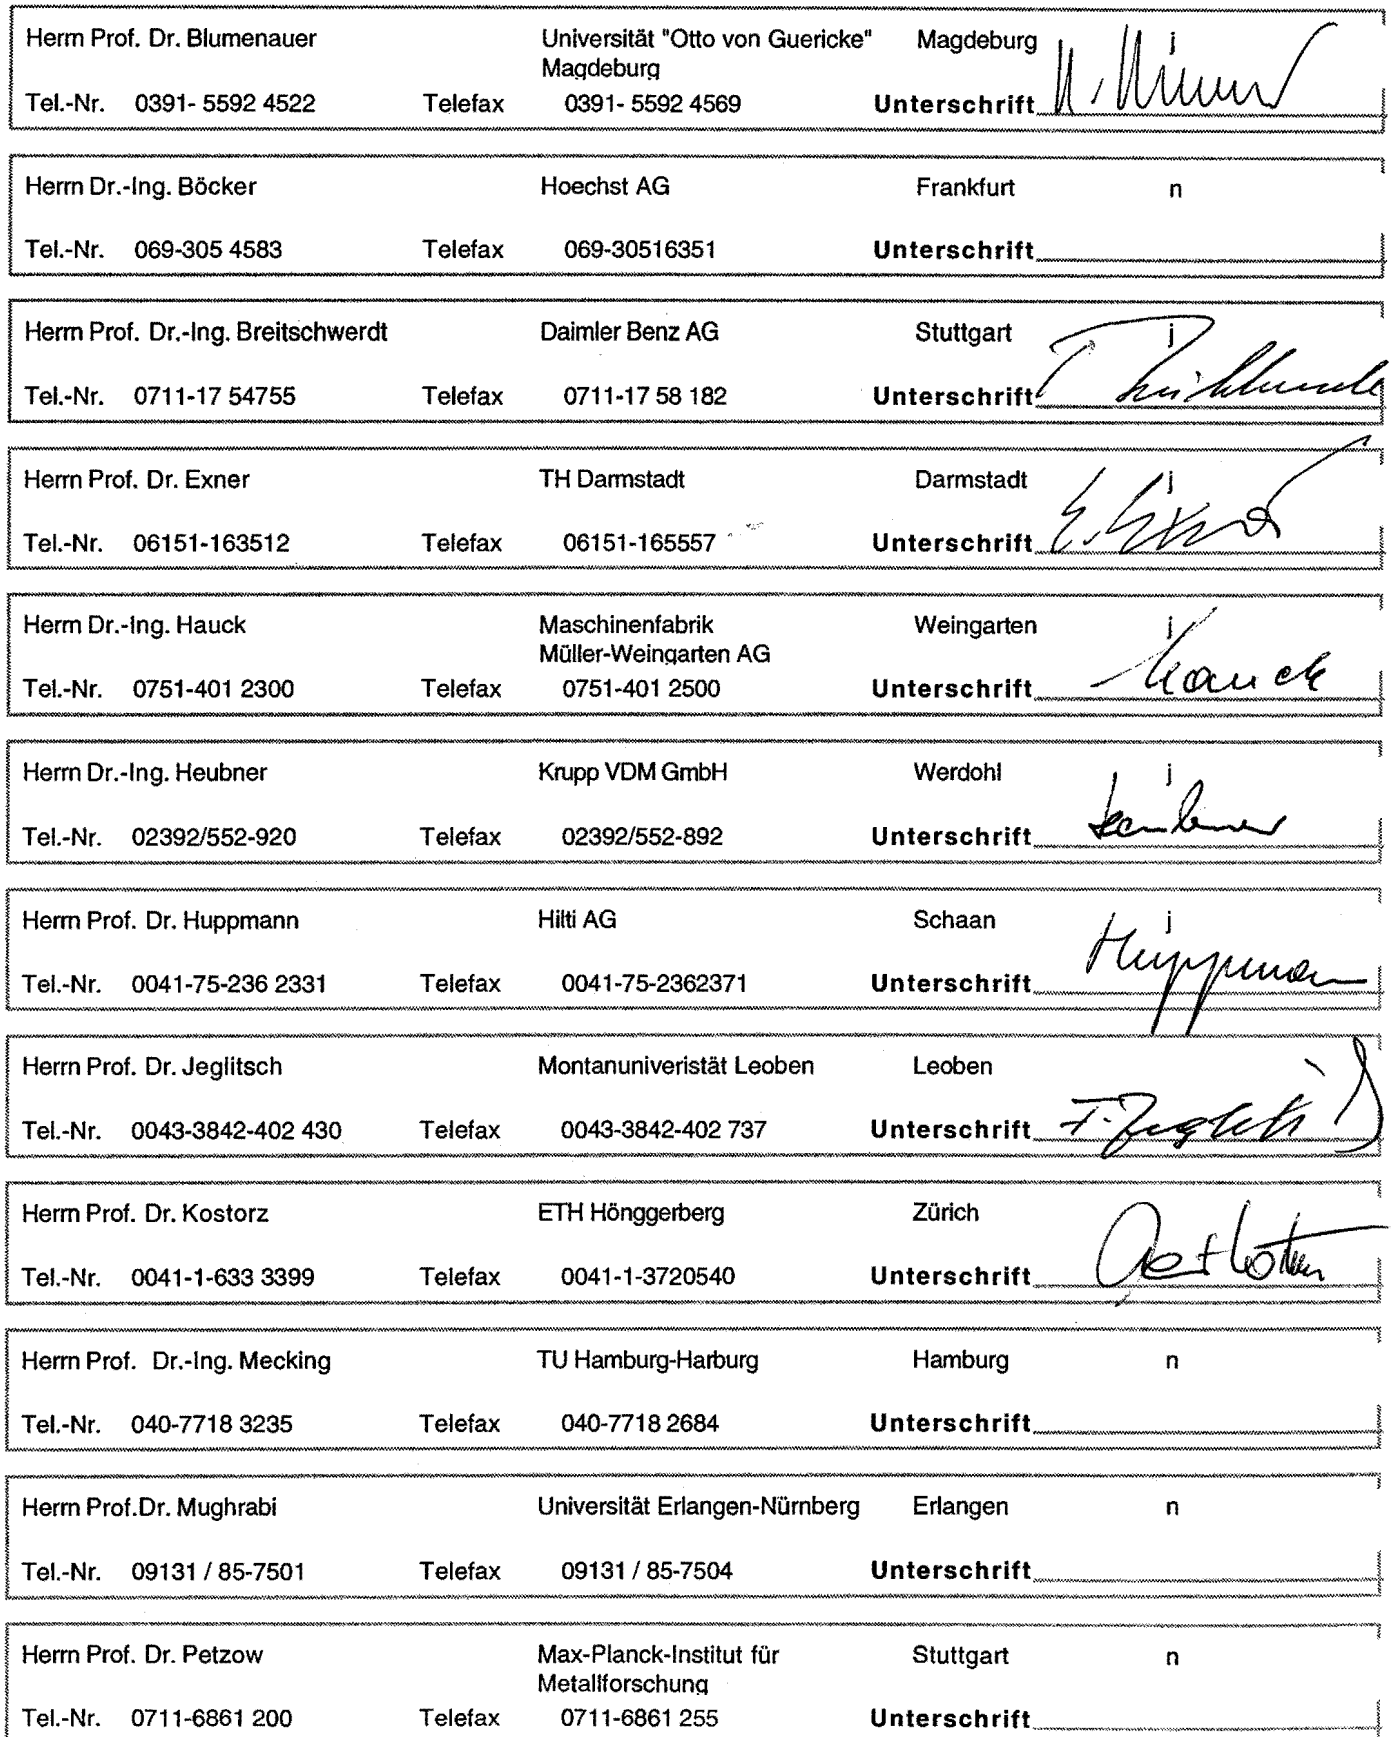 Herrn Prof. Dr. Blumenauer Universität "Otto von Guericke" Magdeburg j
Magdeburg
Tel.-Nr. 0391- 5592 4522 Telefax 0391- 5592 4569 Unterschrift
Herrn Dr.-Ing. Böcker Hoechst AG Frankfurt n
Tel.-Nr. 069-305 4583 Telefax 069-30516351 Unterschrift
Herrn Prof. Dr.-Ing. Breitschwerdt Daimler Benz AG Stuttgart j
Tel.-Nr. 0711-17 54755 Telefax 0711-17 58 182 Unterschrift
Herrn Prof. Dr. Exner TH Darmstadt Darmstadt j
Tel.-Nr. 06151-163512 Telefax 06151-165557 Unterschrift E. Exner
Herrn Dr.-Ing. Hauck Maschinenfabrik Weingarten j
Müller-Weingarten AG
Tel.-Nr. 0751-401 2300 Telefax 0751-401 2500 Unterschrift Hauck
Herrn Dr.-Ing. Heubner Krupp VDM GmbH Werdohl j
Tel.-Nr. 02392/552-920 Telefax 02392/552-892 Unterschrift Heubner
Herrn Prof. Dr. Huppmann Hilti AG Schaan j
Tel.-Nr. 0041-75-236 2331 Telefax 0041-75-2362371 Unterschrift Huppmann
Herrn Prof. Dr. Jeglitsch Montanuniveristät Leoben Leoben
Tel.-Nr. 0043-3842-402 430 Telefax 0043-3842-402 737 Unterschrift F. Jeglitsch
Herrn Prof. Dr. Kostorz ETH Hönggerberg Zürich
Tel.-Nr. 0041-1-633 3399 Telefax 0041-1-3720540 Unterschrift
Herrn Prof. Dr.-Ing. Mecking TU Hamburg-Harburg Hamburg n
Tel.-Nr. 040-7718 3235 Telefax 040-7718 2684 Unterschrift
Herrn Prof.Dr. Mughrabi Universität Erlangen-Nürnberg Erlangen n
Tel.-Nr. 09131 / 85-7501 Telefax 09131 / 85-7504 Unterschrift
Herrn Prof. Dr. Petzow Max-Planck-Institut für Stuttgart n
Metallforschung
Tel.-Nr. 0711-6861 200 Telefax 0711-6861 255 Unterschrift